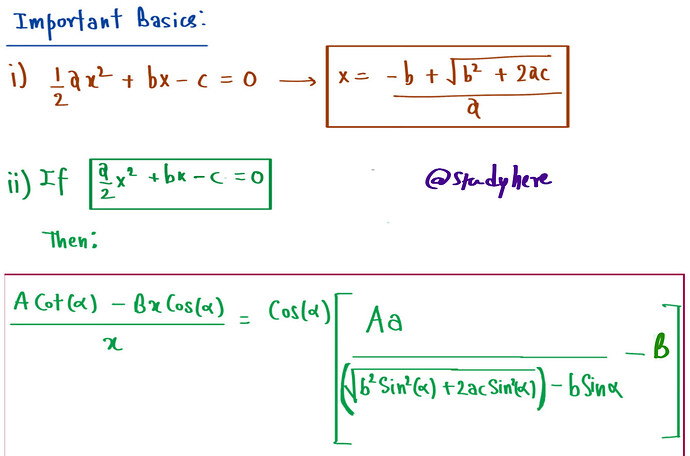 Important Basics:
i) 1/2 ax² + bx - c = 0 → x = (-b + √(b² + 2ac))/a
ii) If a/2 x² + bx - c = 0
@studyhere
Then:
(A Cot(α) - Bx Cos(α))/x = Cos(α) [Aa/((√(b² Sin²(α) + 2ac Sin²(α))) - b Sinα) - B]